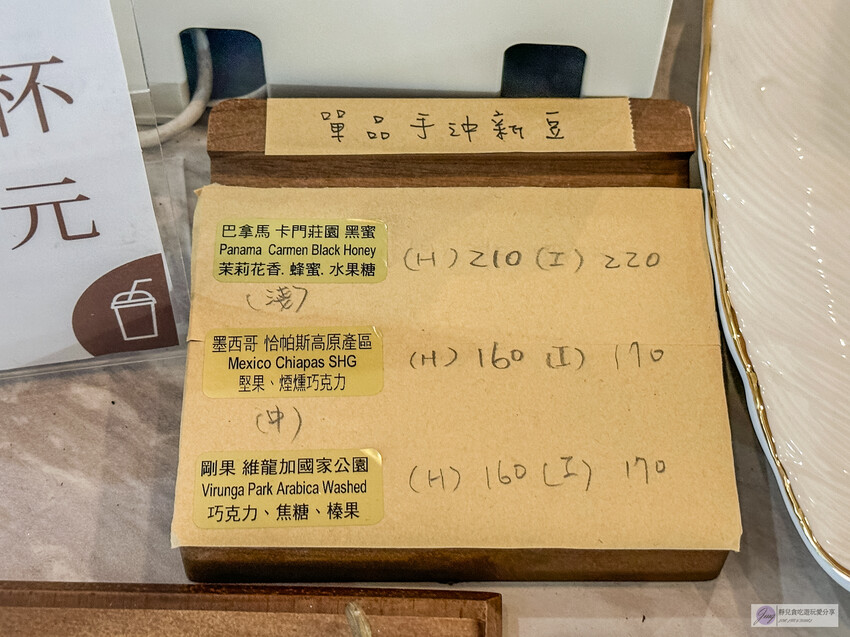 杯
元
單品手沖新豆
巴拿馬 卡門莊園 黑蜜
Panama Carmen Black Honey
茉莉花香. 蜂蜜. 水果糖
(H) 210 (I) 220
(淺)
墨西哥 恰帕斯高原產區
Mexico Chiapas SHG
堅果、煙燻巧克力
(H) 160 (I) 170
(中)
剛果 維龍加國家公園
Virunga Park Arabica Washed
巧克力、焦糖、榛果
(H) 160 (I) 170
靜兒貪吃遊玩愛分享